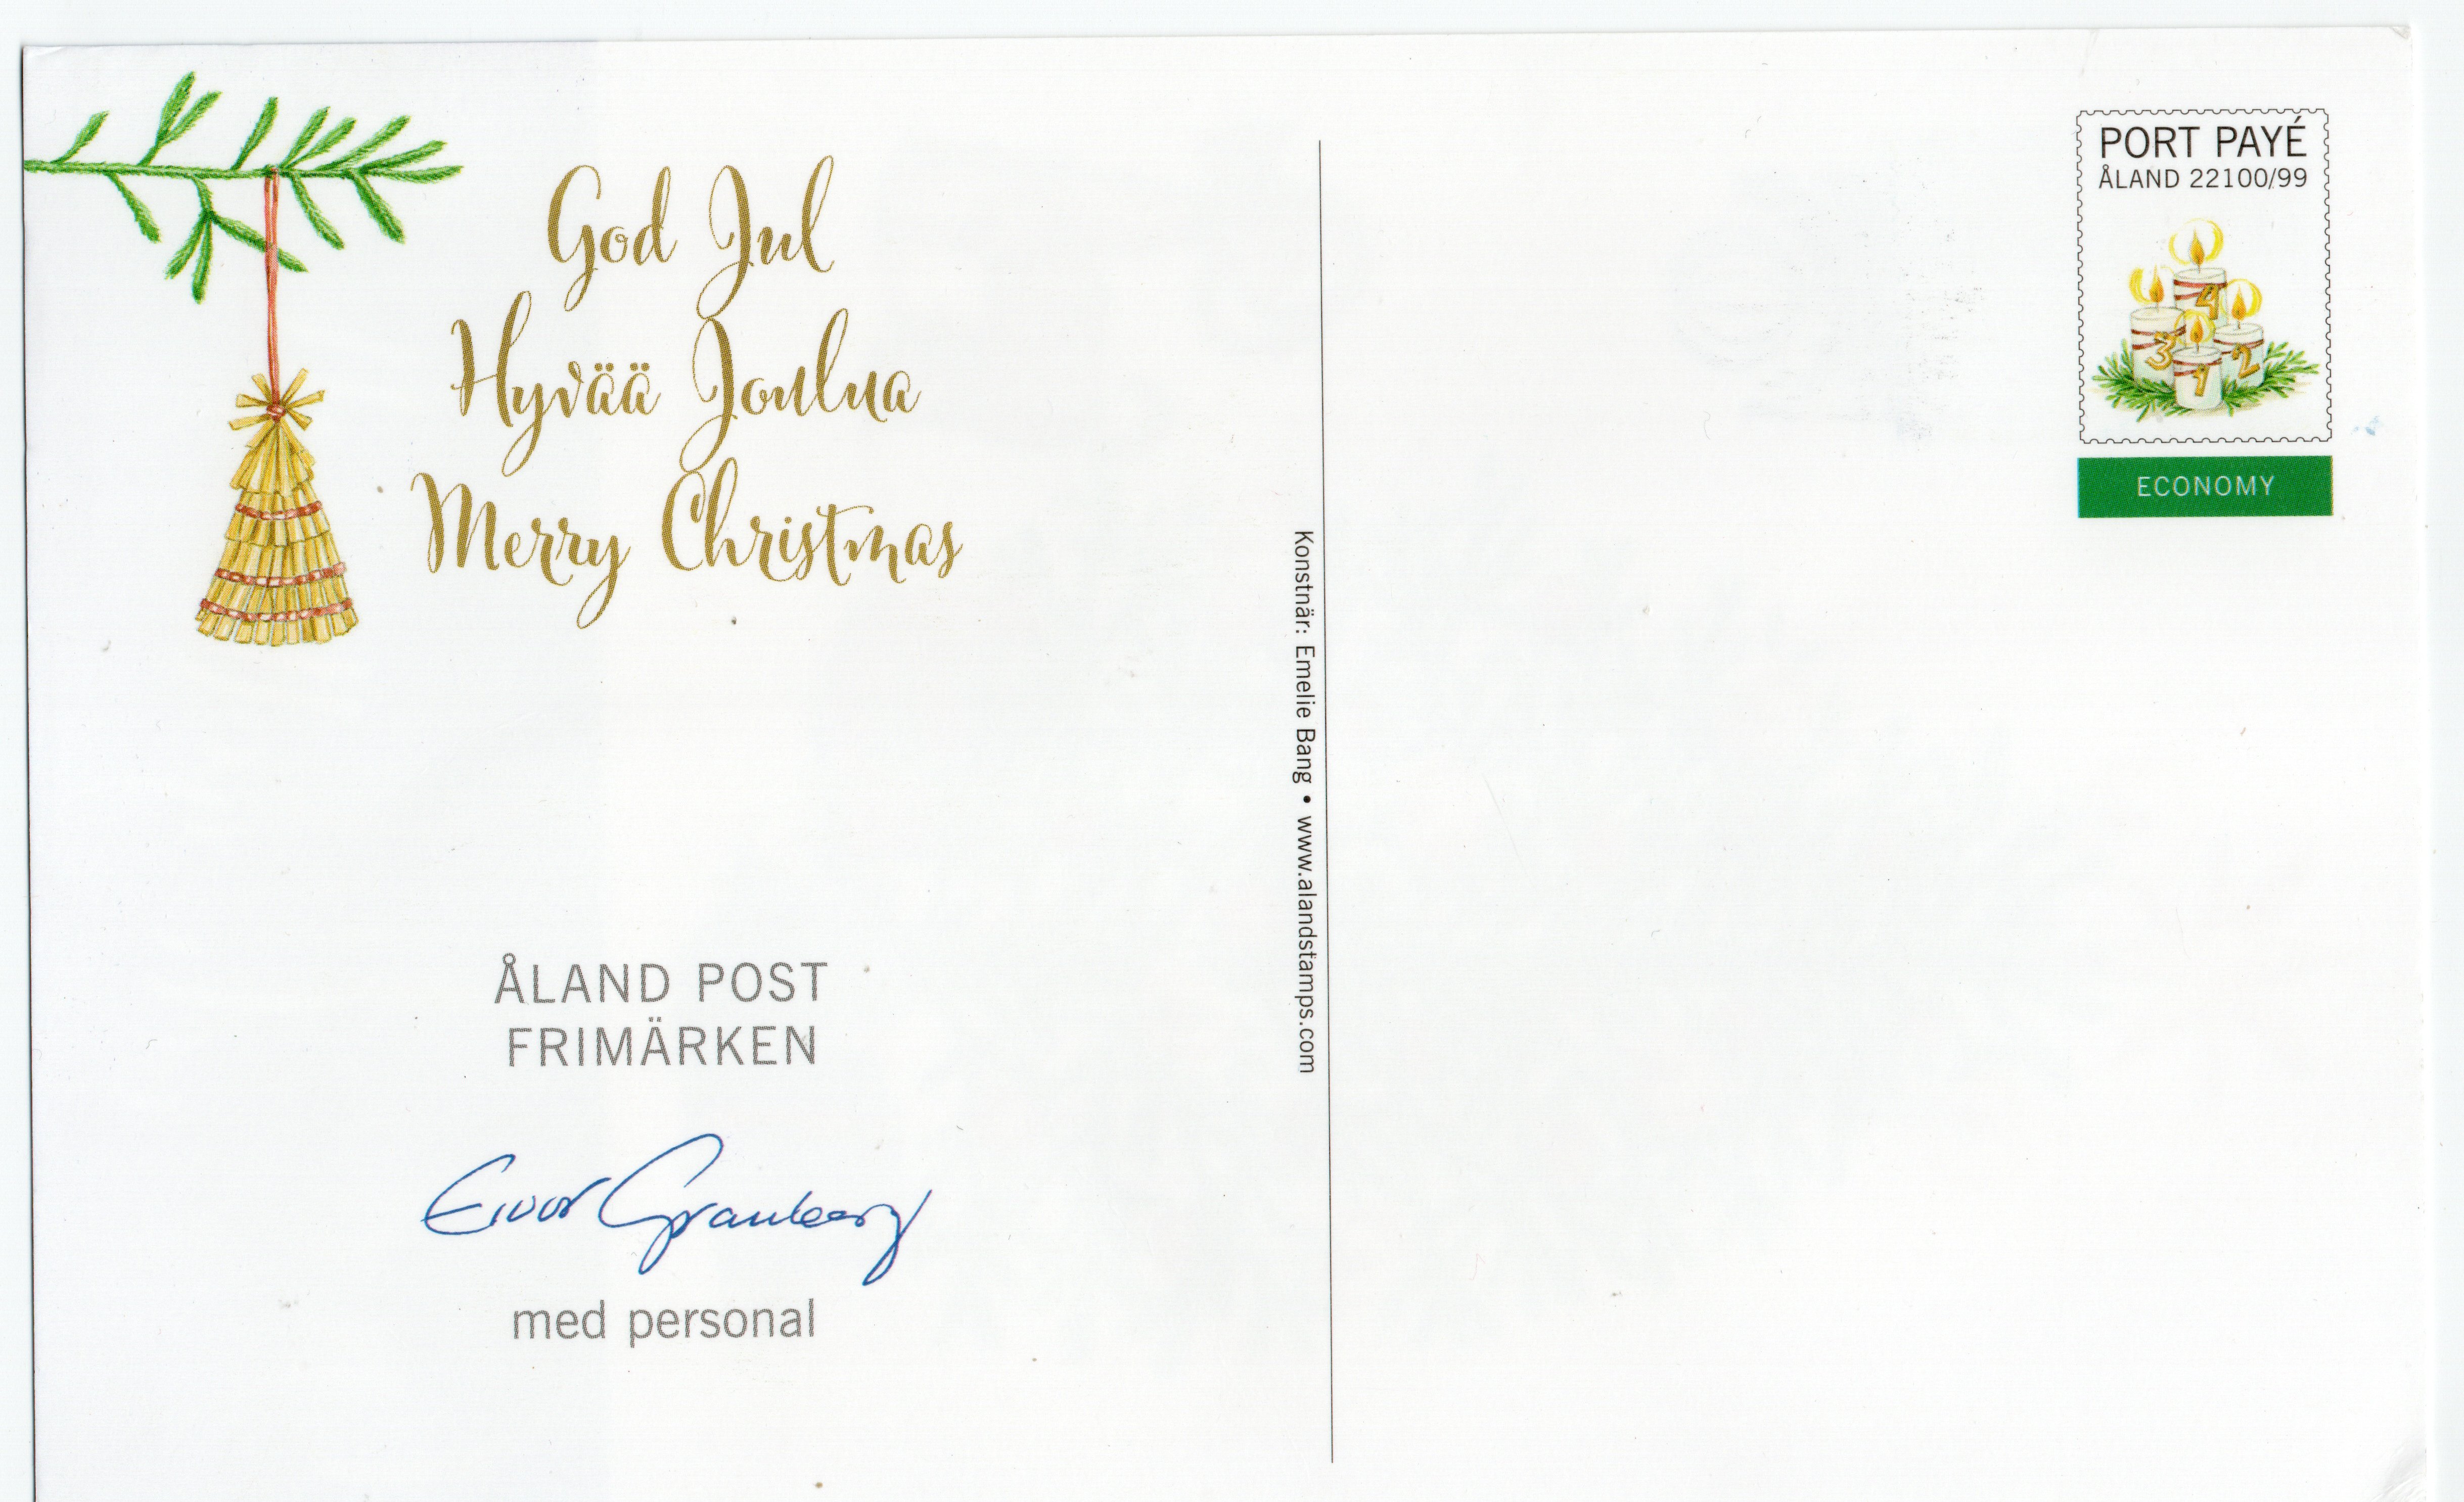 God Jul
Hyvää Joulua
Merry Christmas
ÅLAND POST
FRIMÄRKEN
Eivor Granberg
med personal
Konstnär: Emelie Bang • www.alandstamps.com
PORT PAYÉ
ÅLAND 22100/99
4
3
2
1
ECONOMY